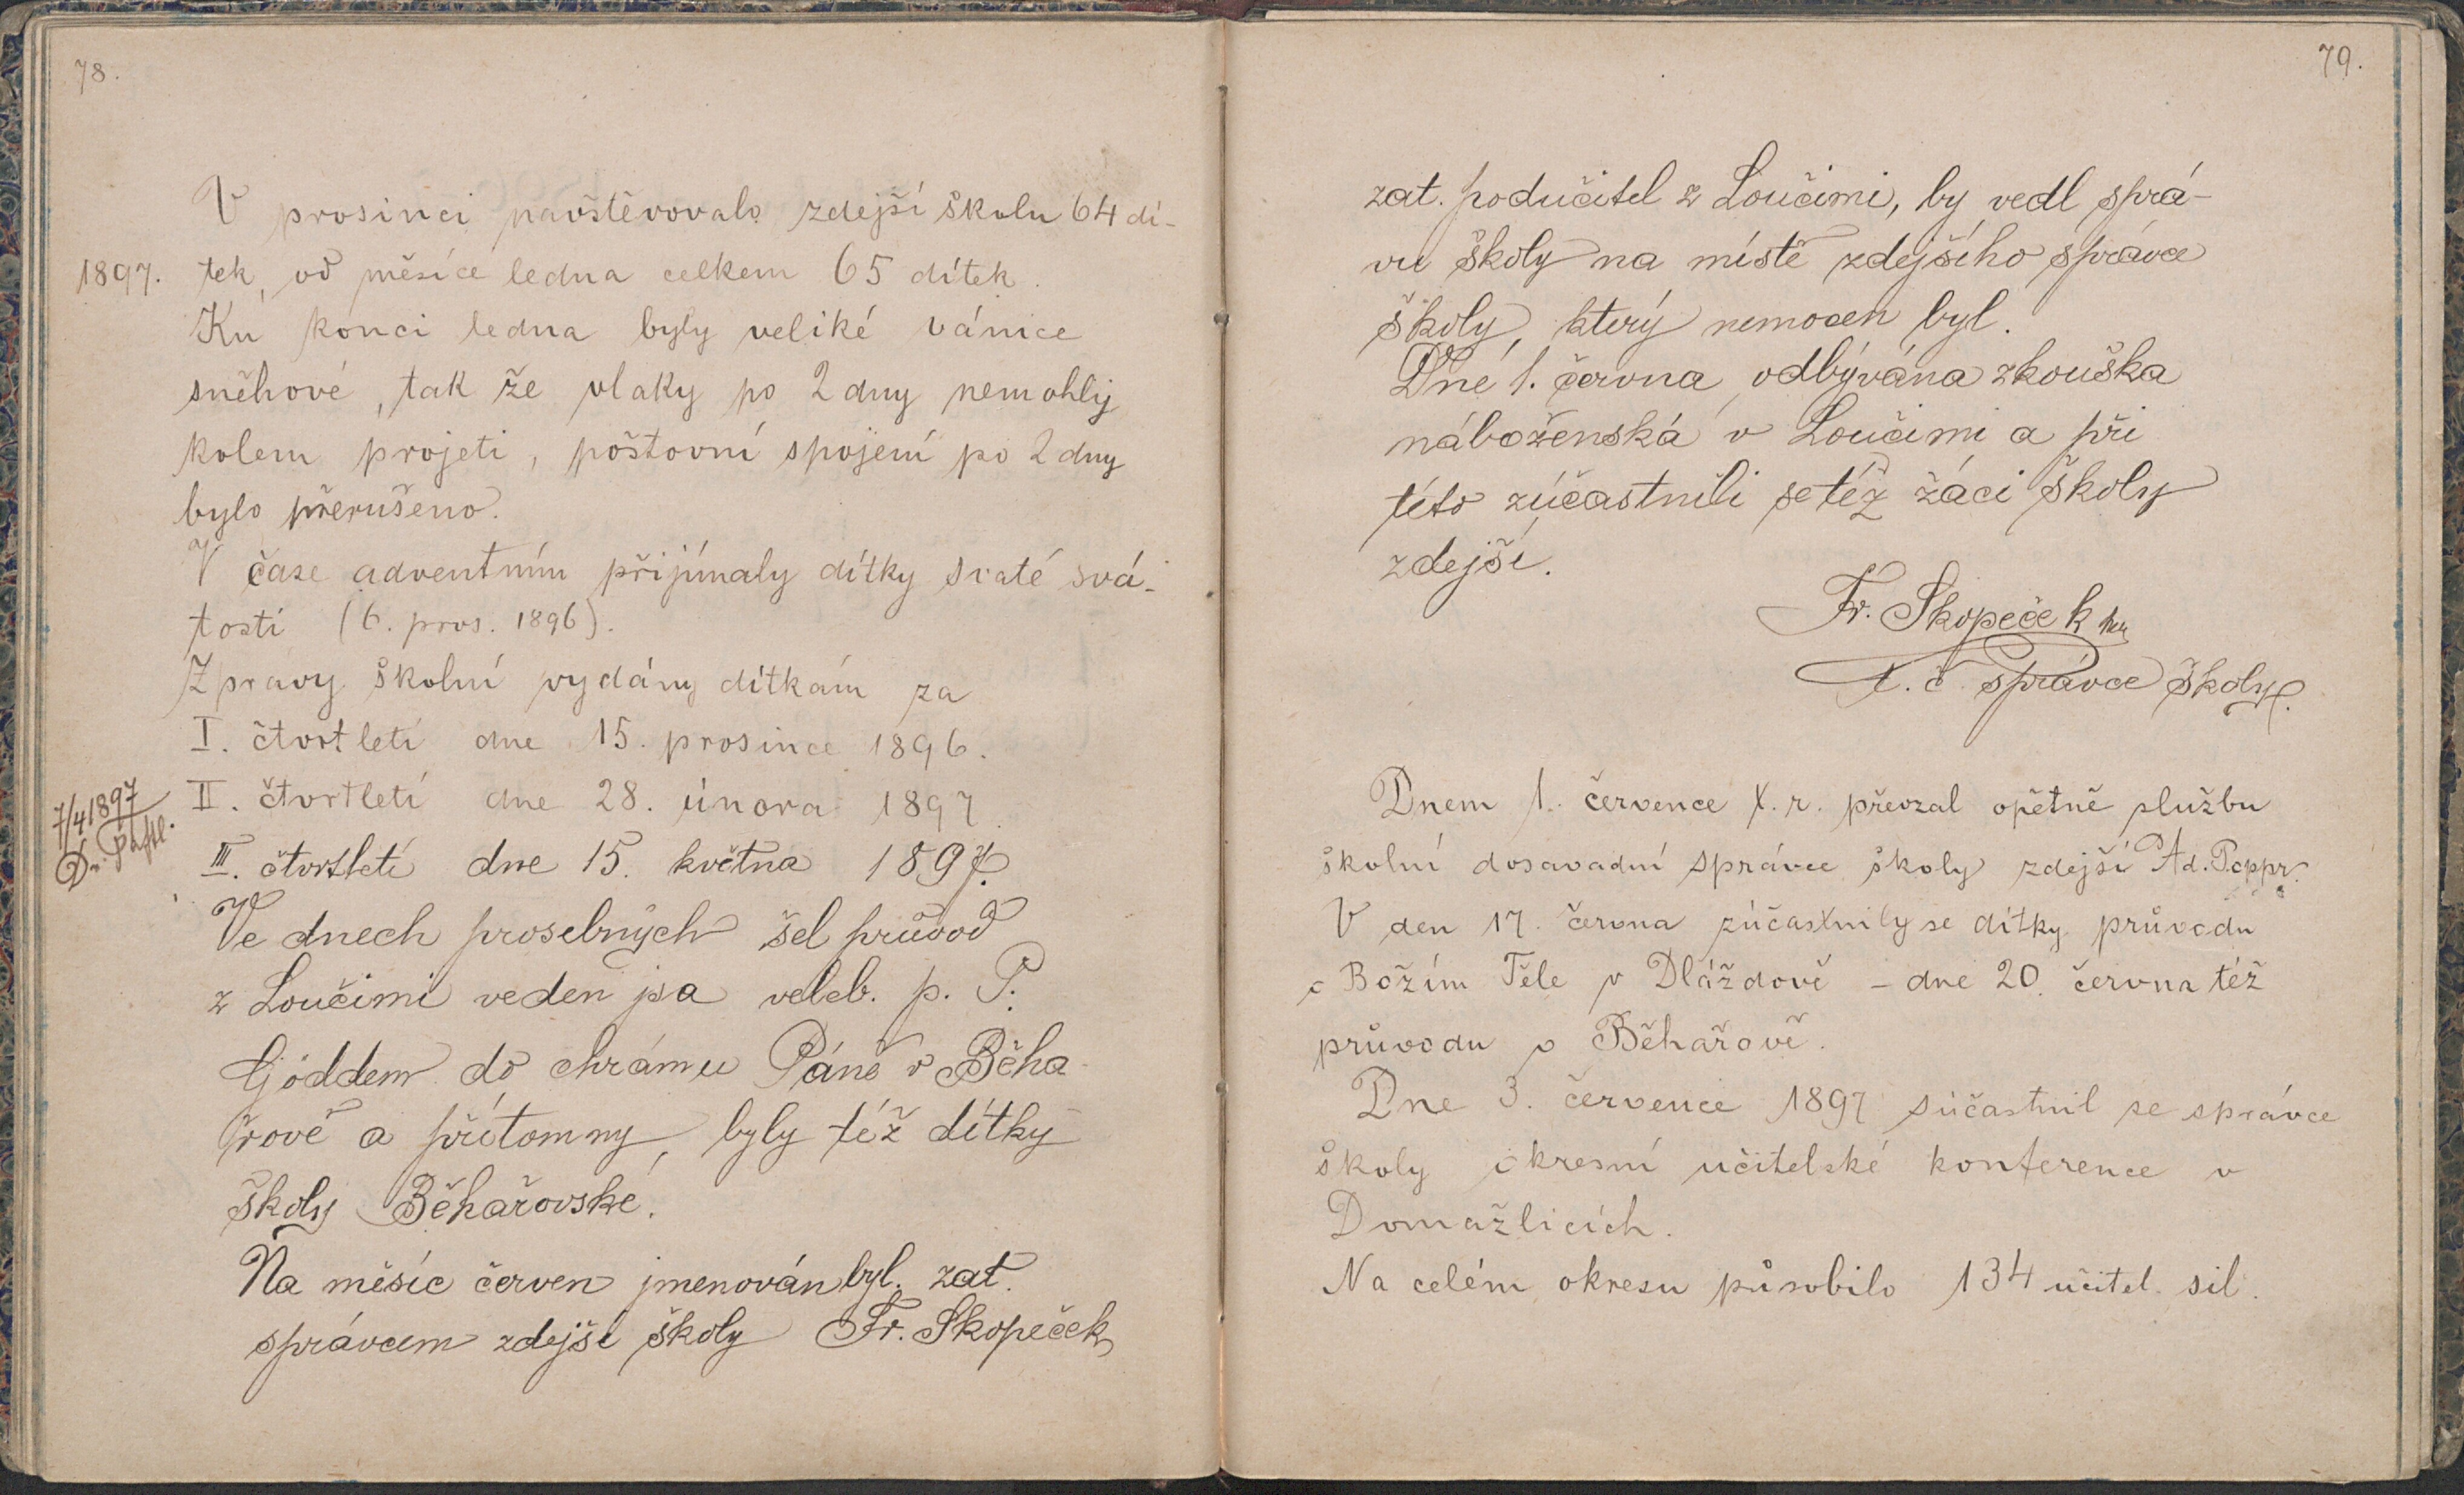 78.
V prosinci navštěvovalo zdejší školu 64 dí-
1897. tek, od měsíce ledna celkem 65 dítek.
Ku konci ledna byly veliké vánice
sněhové, tak že vlaky po 2 dny nemohly
kolem projeti, poštovní spojení po 2 dny
bylo přerušeno.
V čase adventním přijímaly dítky svaté svá-
tosti (6. pros. 1896).
Zprávy školní vydány dítkám za
I. čtvrtletí dne 15. prosince 1896.
II. čtvrtletí dne 28. února 1897.
7/4 1897
Dr.
III. čtvrtletí dne 15. května 1897.
Ve dnech prosebných šel průvod
z Loučimi veden jsa veleb. p. P.
Göddem do chrámu Páně v Běha-
řově a přítomny byly též dítky
školy Běhařovské.
Na měsíc červen jmenován byl zat.
správcem zdejší školy Fr. Skopeček,
79.
zat. podučitel z Loučimi, by vedl sprá-
vu školy na místě zdejšího správce
školy, který nemocen byl.
Dne 1. června odbývána zkouška
náboženská v Loučimi a při
této zúčastnili se též žáci školy
zdejší.
Fr. Skopeček
t. č. správce školy.
Dnem 1. července t. r. převzal opětně službu
školní dosavadní správce školy zdejší Ad. Poppr.
V den 17. června zúčastnily se dítky průvodu
o Božím Těle v Dláždově – dne 20. června též
průvodu v Běhařově.
Dne 3. července 1897 súčastnil se správce
školy okresní učitelské konference v
Domažlicích.
Na celém okresu působilo 134 učitel. sil.